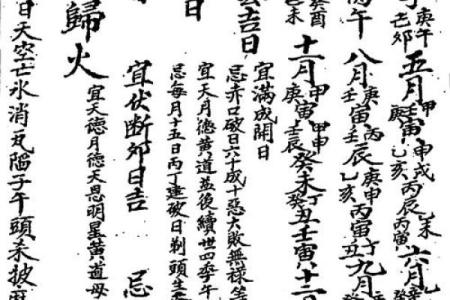 庚午 乙卯 五月 甲寅 甲戌 乙亥 丙辰 丙寅 乙未 六月
丙午 八月 庚寅 壬辰 丙 乙亥 庚申 丙寅 丁丑 九月
癸酉 乙未 十一月 甲寅 庚寅 甲申 壬辰 癸未 癸丑 壬寅 十二
吉日 宜滿成開日
忌赤口破日六十成十惡大敗無祿等
日 宜天月德黃道益後續世四季午
忌每月十五日丙丁建破日剃頭生
宜伏断卯日吉 忌
歸火 宜天德月德天恩明星黃道母
日天空亡氷消瓦陷子午頭未披麻